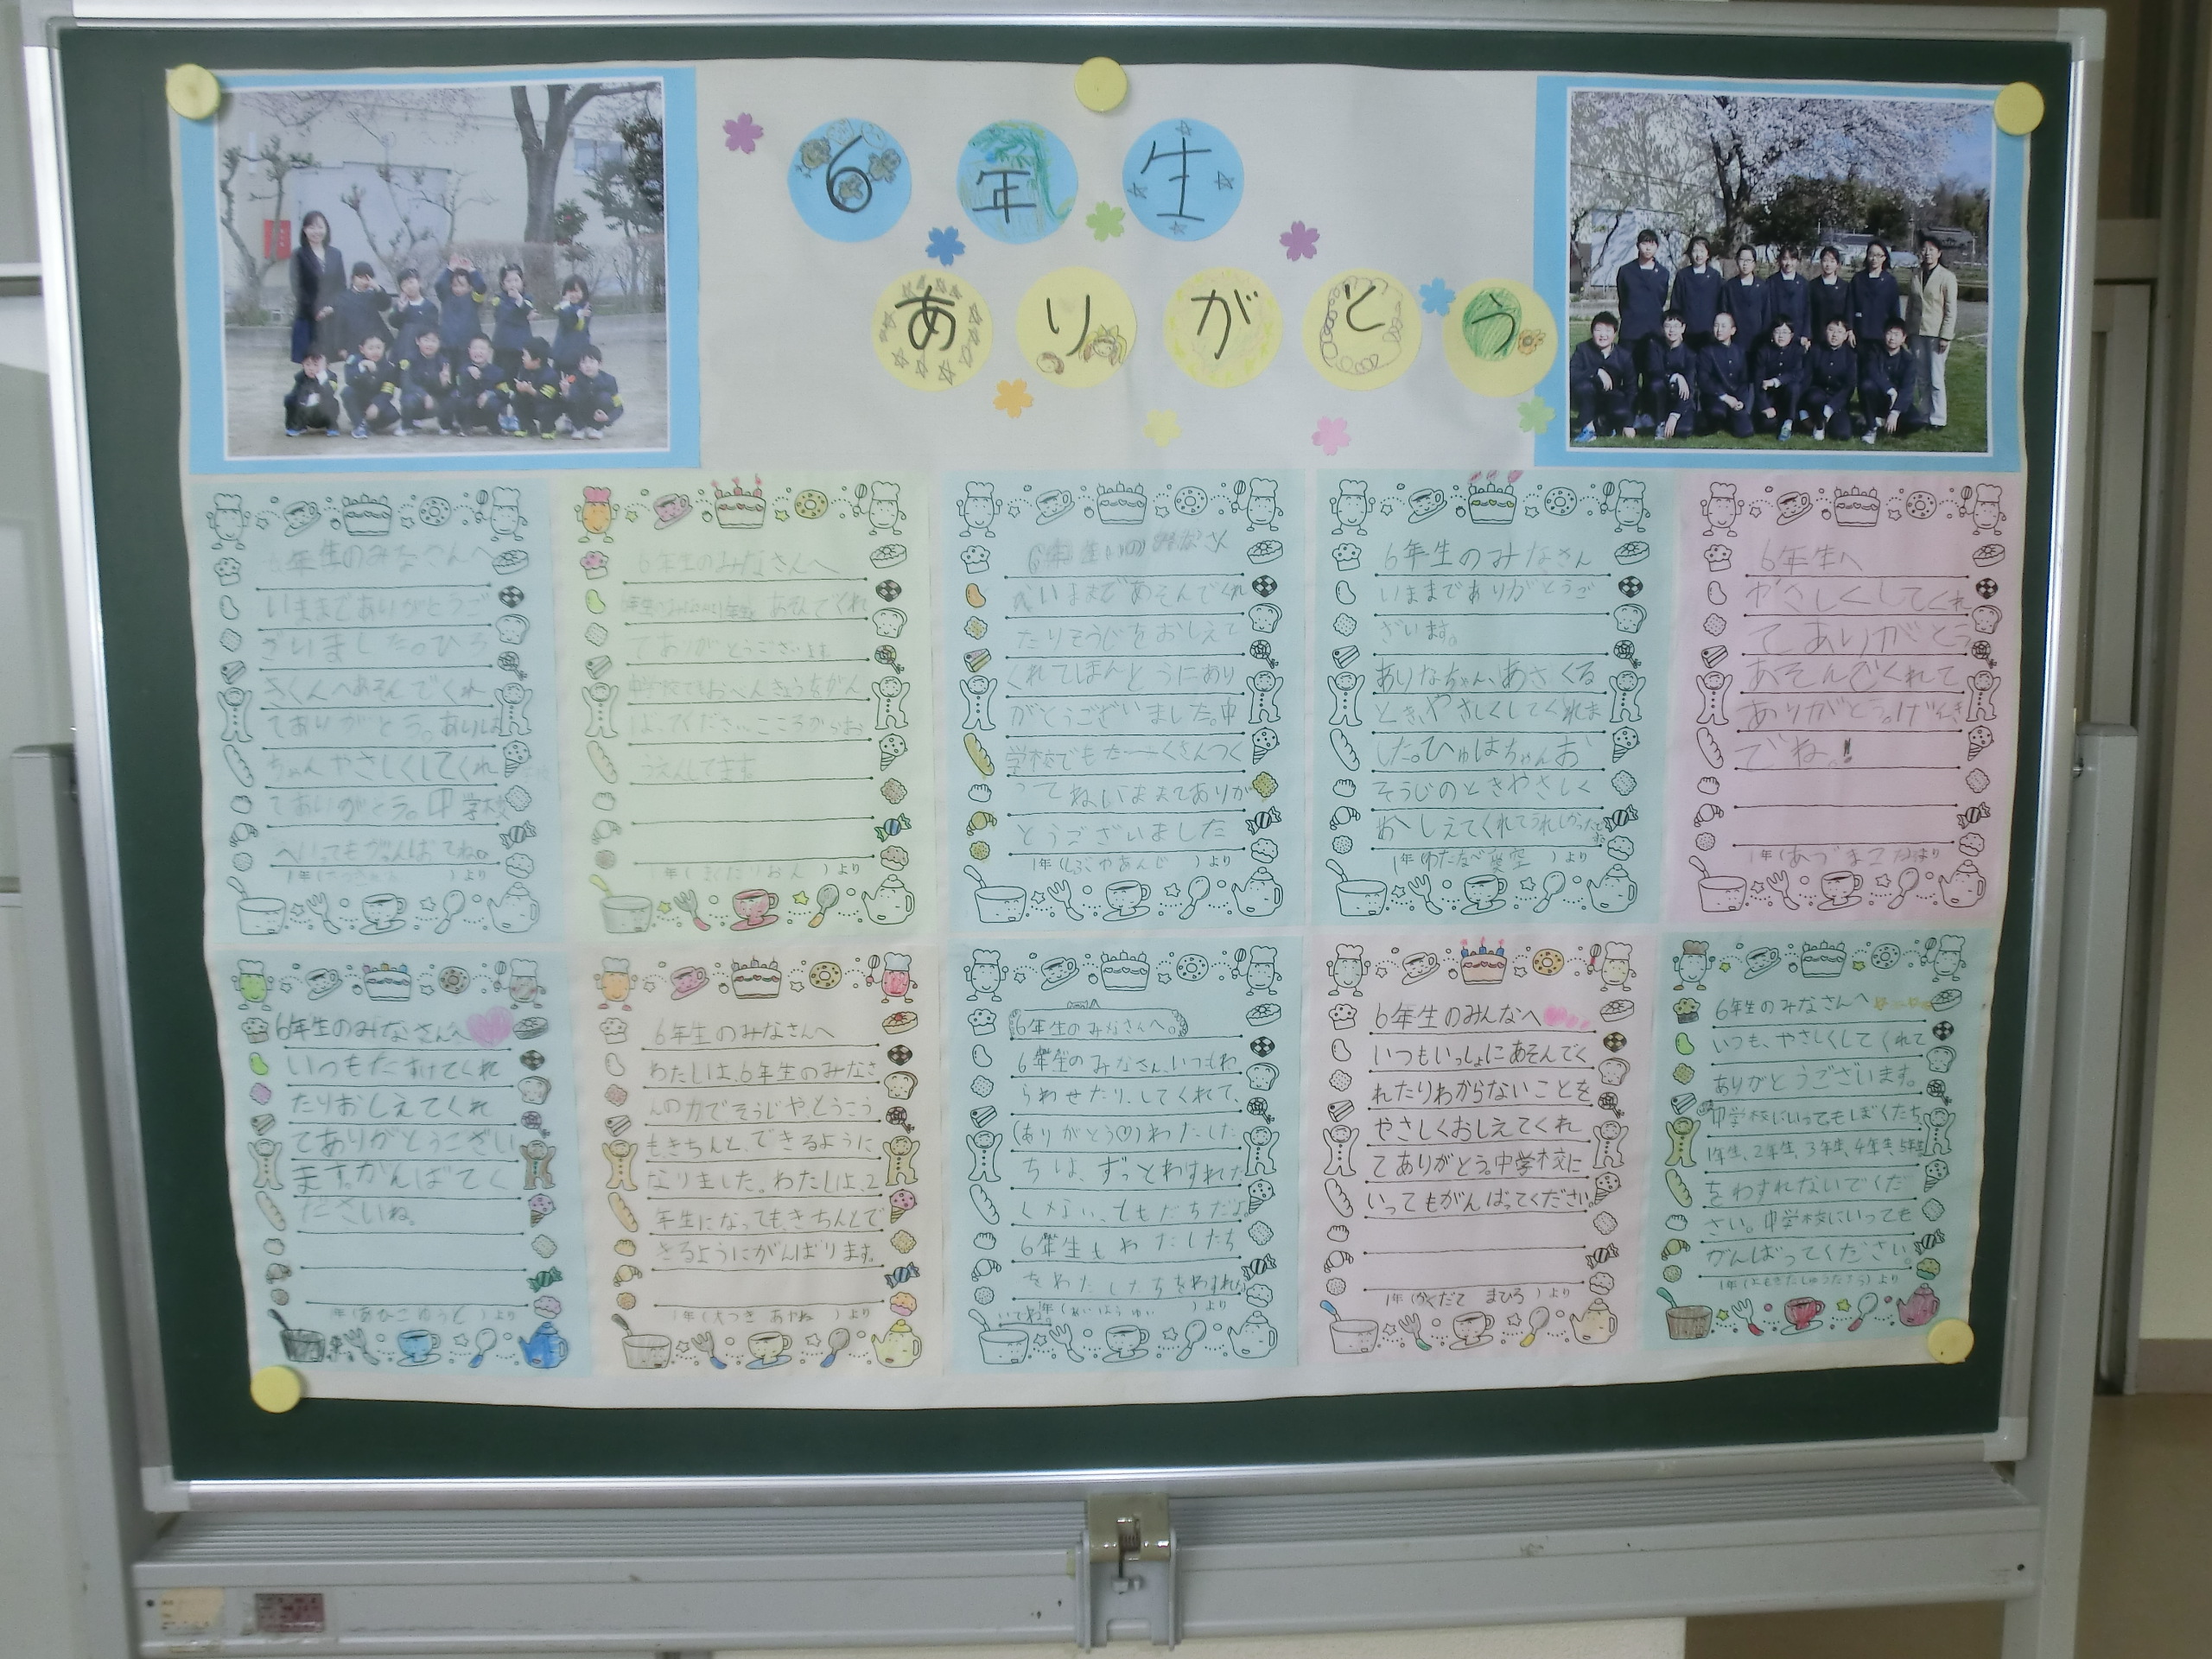 6年生
ありがとう
年生のみなさんへ
いままでありがとうご
ざいました。ひろ
きくんへあそんでくれ
てありがとう。ありな
ちゃんやさしくしてくれ
てありがとう。中学校
へいってもがんばってね。
1年( )より
6年生のみなさんへ
あそんでくれ
てありがとうございます
中学校でもおべんきょうをがん
ください。こころからお
うえんしてます。
1年( )より
6年生のみなさん
いままであそんでくれ
たりそうじをおしえて
くれてほんとうにあり
がとうございました。中
学校でもた一くさんつく
ってねいままでありが
とうございました
1年(しぶやあんじ)より
6年生のみなさん
いままでありがとうご
ざいます。
ありなちゃん、あさくる
とき、やさしくしてくれま
した。ひゅはちゃんお
そうじのときやさしく
おしえてくれてうれしかったです
1年(わたなべ愛空)より
6年生へ
やさしくしてくれ
てありがとう
あそんでくれて
ありがとう。げんき
でね。!
1年( )より
6年生のみなさんへ
いつもたすけてくれ
たりおしえてくれ
てありがとうござい
ます。がんばてく
ださいね。
年(あひこゆうと)より
6年生のみなさんへ
わたしは、6年生のみなさ
んの力でそうじや、とうこう
もきちんと、できるように
なりました。わたしは、2
年生になっても、きちんとで
きるようにがんばります。
1年(大つき あやね)より
6年生のみなさんへ。
6年生のみなさん、いつもわ
らわせたり、してくれて、
(ありがとう♡)わたした
ちは、ずっとわすれた
くない、ともだちだよ。
6年生もわたしたち
をわたしたちをわすれな
いでね。
年(あいはらゆい)より
6年生のみんなへ
いつもいっしょにあそんでく
れたりわからないことを
やさしくおしえてくれ
てありがとう。中学校に
いってもがんばってください。
1年(かくだて まひろ)より
6年生のみなさんへ
いつも、やさしくしてくれて
ありがとうございます。
中学校にいってもぼくたち
1年生、2年生、3年生、4年生、5年生
をわすれないでくだ
さい。中学校にいっても
がんばってください。
1年( )より